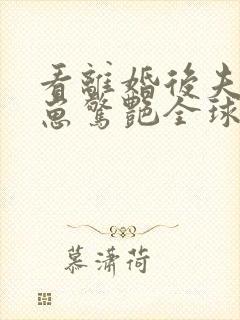 看離婚後夫
崽驚艷全球
慕瀟荷